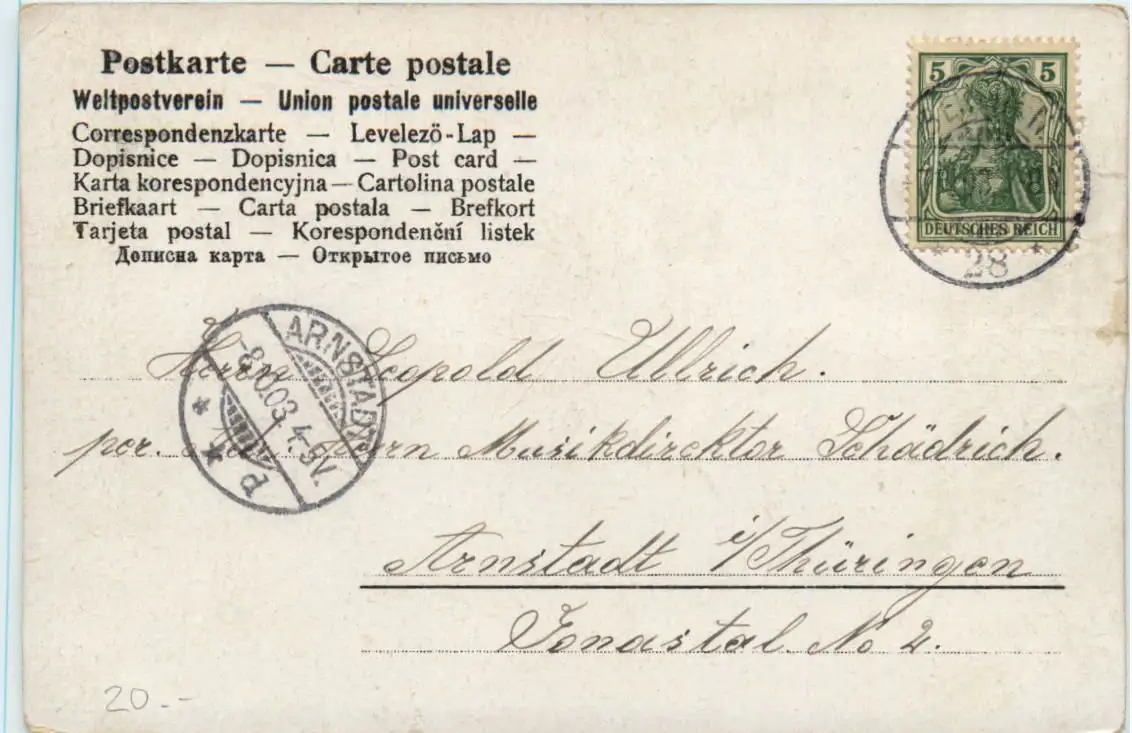 Postkarte — Carte postale
Weltpostverein — Union postale universelle
Correspondenzkarte — Levelező-Lap —
Dopisnice — Dopisnica — Post card —
Karta korespondencyjna — Cartolina postale
Briefkaart — Carta postala — Brefkort
Tarjeta postal — Korespondenční listek
Дописна карта — Открытое письмо
5 5
DEUTSCHES REICH
28
ARNSTADT
-8.10.03. 4-5V.
* d *
Herrn Leopold Ullrich.
per. Herrn Musikdirektor Schädrich.
Arnstadt i/Thüringen
Jonastal No 2.
20.-